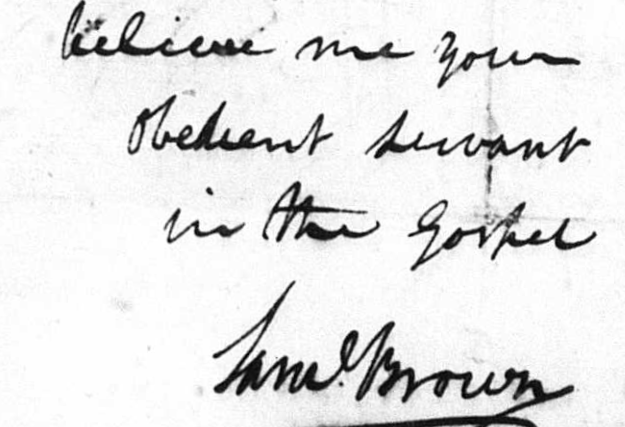 believe me your
Obedient servant
in the Gospel
Saml. Brown